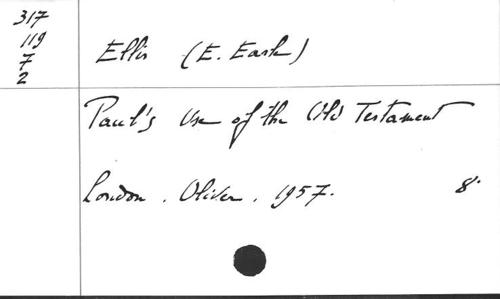 317
119
7
2
Ellis (E. Earle)
Paul's Use of the Old Testament
London. Oliver. 1957. 8°